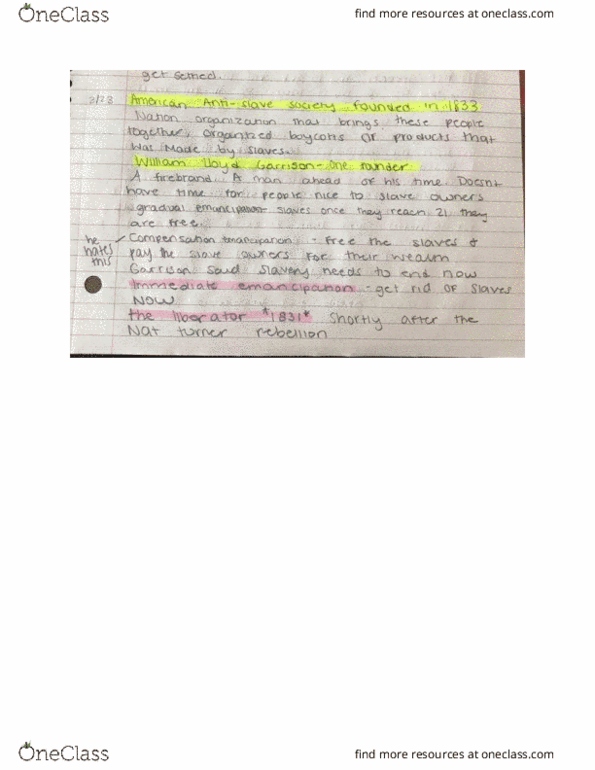 OneClass
find more resources at oneclass.com
get settled.
2/23 American Anti-slave society founded in 1833
Nation organization that brings these people
together, organized boycotts of products that
was made by slaves.
William Lloyd Garrison - One founder
A firebrand. A man ahead of his time. Doesnt
have time for people nice to slave owners
gradual emancipation - slaves once they reach 21 they
are free.
he hates this
Compensation emancipation - Free the slaves &
pay the slave owners for their wealth
Garrison said slavery needs to end now
Immediate emancipation - get rid of slaves
NOW
the liberator *1831* shortly after the
Nat turner rebellion
OneClass
find more resources at oneclass.com